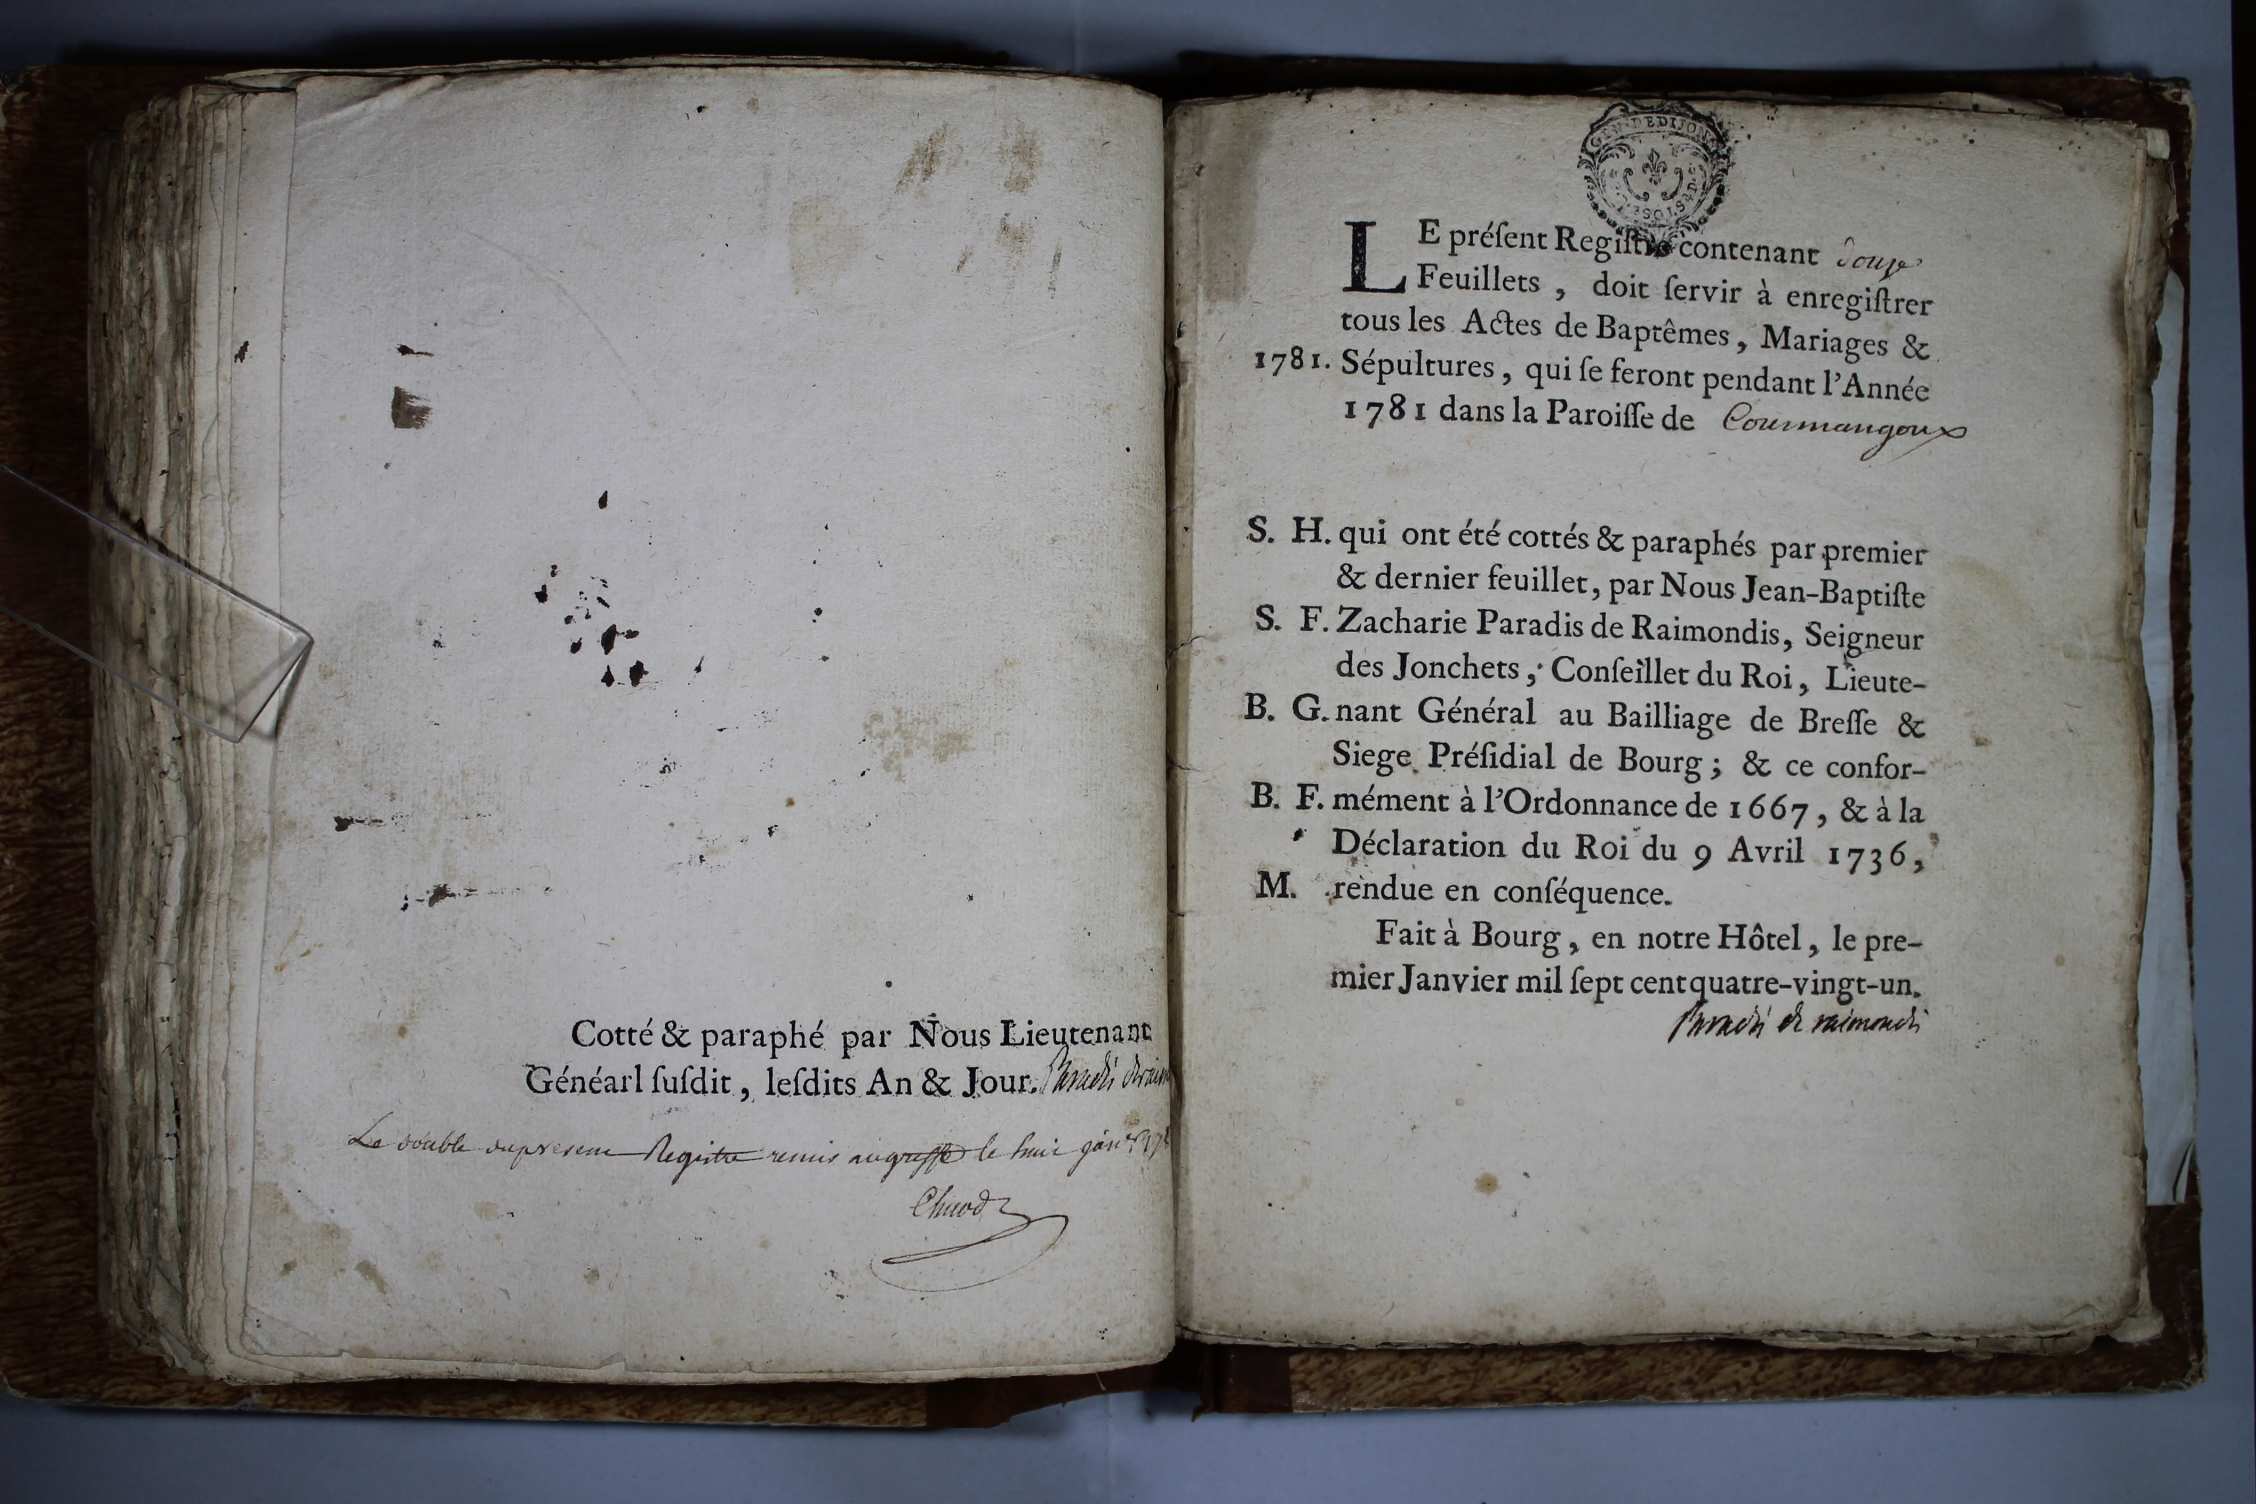 Cotté & paraphé par Nous Lieutenant
Généarl ſuſdit, leſdits An & Jour. Paradis de raim
Le double du present Registre remis au greffe le huit janer 178
GEN DE DIJON
LE préſent Regiſtre contenant douze
Feuillets, doit ſervir à enregiſtrer
tous les Actes de Baptêmes, Mariages &
1781. Sépultures, qui ſe feront pendant l'Année
1781 dans la Paroiſſe de Courmangoux
S. H. qui ont été cottés & paraphés par premier
& dernier feuillet, par Nous Jean-Baptiſte
S. F. Zacharie Paradis de Raimondis, Seigneur
des Jonchets, Conſeillet du Roi, Lieute-
B. G. nant Général au Bailliage de Breſſe &
Siege Préſidial de Bourg; & ce confor-
B. F. mément à l'Ordonnance de 1667, & à la
Déclaration du Roi du 9 Avril 1736,
M. rendue en conſéquence.
Fait à Bourg, en notre Hôtel, le pre-
mier Janvier mil ſept cent quatre-vingt-un.
Paradis de raimondis